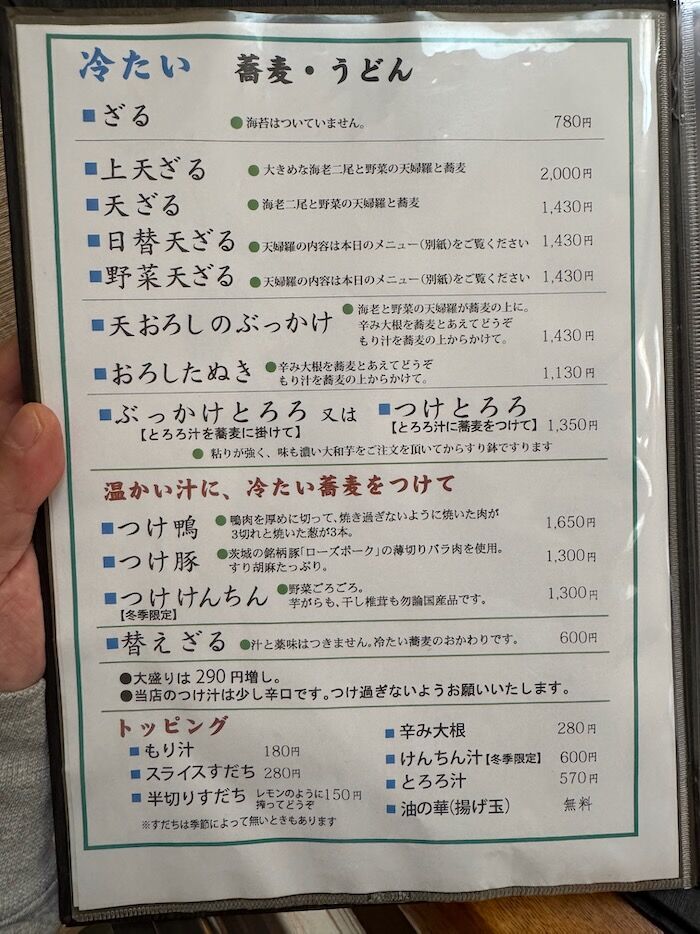 冷たい 蕎麦・うどん
■ざる ●海苔はついていません。 780円
■上天ざる ●大きめな海老二尾と野菜の天婦羅と蕎麦 2,000円
■天ざる ●海老二尾と野菜の天婦羅と蕎麦 1,430円
■日替天ざる ●天婦羅の内容は本日のメニュー(別紙)をご覧ください 1,430円
■野菜天ざる ●天婦羅の内容は本日のメニュー(別紙)をご覧ください 1,430円
■天おろしのぶっかけ ●海老と野菜の天婦羅が蕎麦の上に。
辛み大根を蕎麦とあえてどうぞ
もり汁を蕎麦の上からかけて。 1,430円
■おろしたぬき ●辛み大根を蕎麦とあえてどうぞ
もり汁を蕎麦の上からかけて。 1,130円
■ぶっかけとろろ 又は ■つけとろろ
【とろろ汁を蕎麦に掛けて】 【とろろ汁に蕎麦をつけて】 1,350円
●粘りが強く、味も濃い大和芋をご注文を頂いてからすり鉢ですります
温かい汁に、冷たい蕎麦をつけて
■つけ鴨 ●鴨肉を厚めに切って、焼き過ぎないように焼いた肉が
3切れと焼いた葱が3本。 1,650円
■つけ豚 ●茨城の銘柄豚「ローズポーク」の薄切りバラ肉を使用。
すり胡麻たっぷり。 1,300円
■つけけんちん ●野菜ごろごろ。
【冬季限定】 芋がらも、干し椎茸も勿論国産品です。 1,300円
■替えざる ●汁と薬味はつきません。冷たい蕎麦のおかわりです。 600円
●大盛りは290円増し。
●当店のつけ汁は少し辛口です。つけ過ぎないようお願いいたします。
トッピング
■もり汁 180円
■スライスすだち 280円
■半切りすだち レモンのように 150円
搾ってどうぞ
※すだちは季節によって無いときもあります
■辛み大根 280円
■けんちん汁【冬季限定】 600円
■とろろ汁 570円
■油の華(揚げ玉) 無料